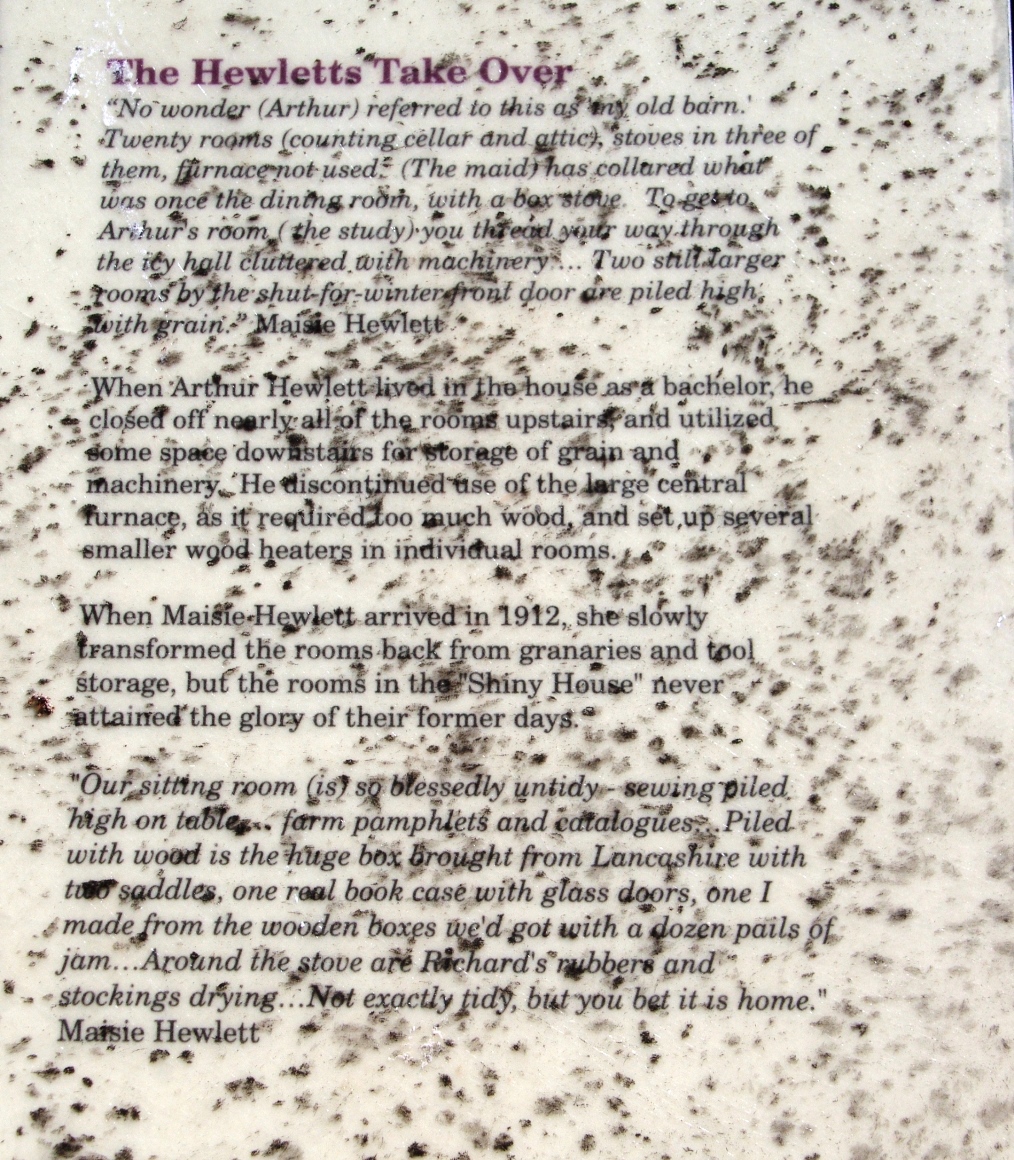 The Hewletts Take Over
"No wonder (Arthur) referred to this as 'my old barn.'
Twenty rooms (counting cellar and attic), stoves in three of
them, furnace not used." (The maid) has collared what
was once the dining room, with a box stove. To get to
Arthur's room ( the study) you thread your way through
the icy hall cluttered with machinery ... Two still larger
rooms by the shut-for-winter front door are piled high
with grain." Maisie Hewlett
When Arthur Hewlett lived in the house as a bachelor, he
closed off nearly all of the rooms upstairs, and utilized
some space downstairs for storage of grain and
machinery. He discontinued use of the large central
furnace, as it required too much wood, and set up several
smaller wood heaters in individual rooms.
When Maisie Hewlett arrived in 1912, she slowly
transformed the rooms back from granaries and tool
storage, but the rooms in the "Shiny House" never
attained the glory of their former days.
"Our sitting room (is) so blessedly untidy - sewing piled
high on table... farm pamphlets and catalogues...Piled
with wood is the huge box brought from Lancashire with
two saddles, one real book case with glass doors, one I
made from the wooden boxes we'd got with a dozen pails of
jam...Around the stove are Richard's rubbers and
stockings drying...Not exactly tidy, but you bet it is home."
Maisie Hewlett